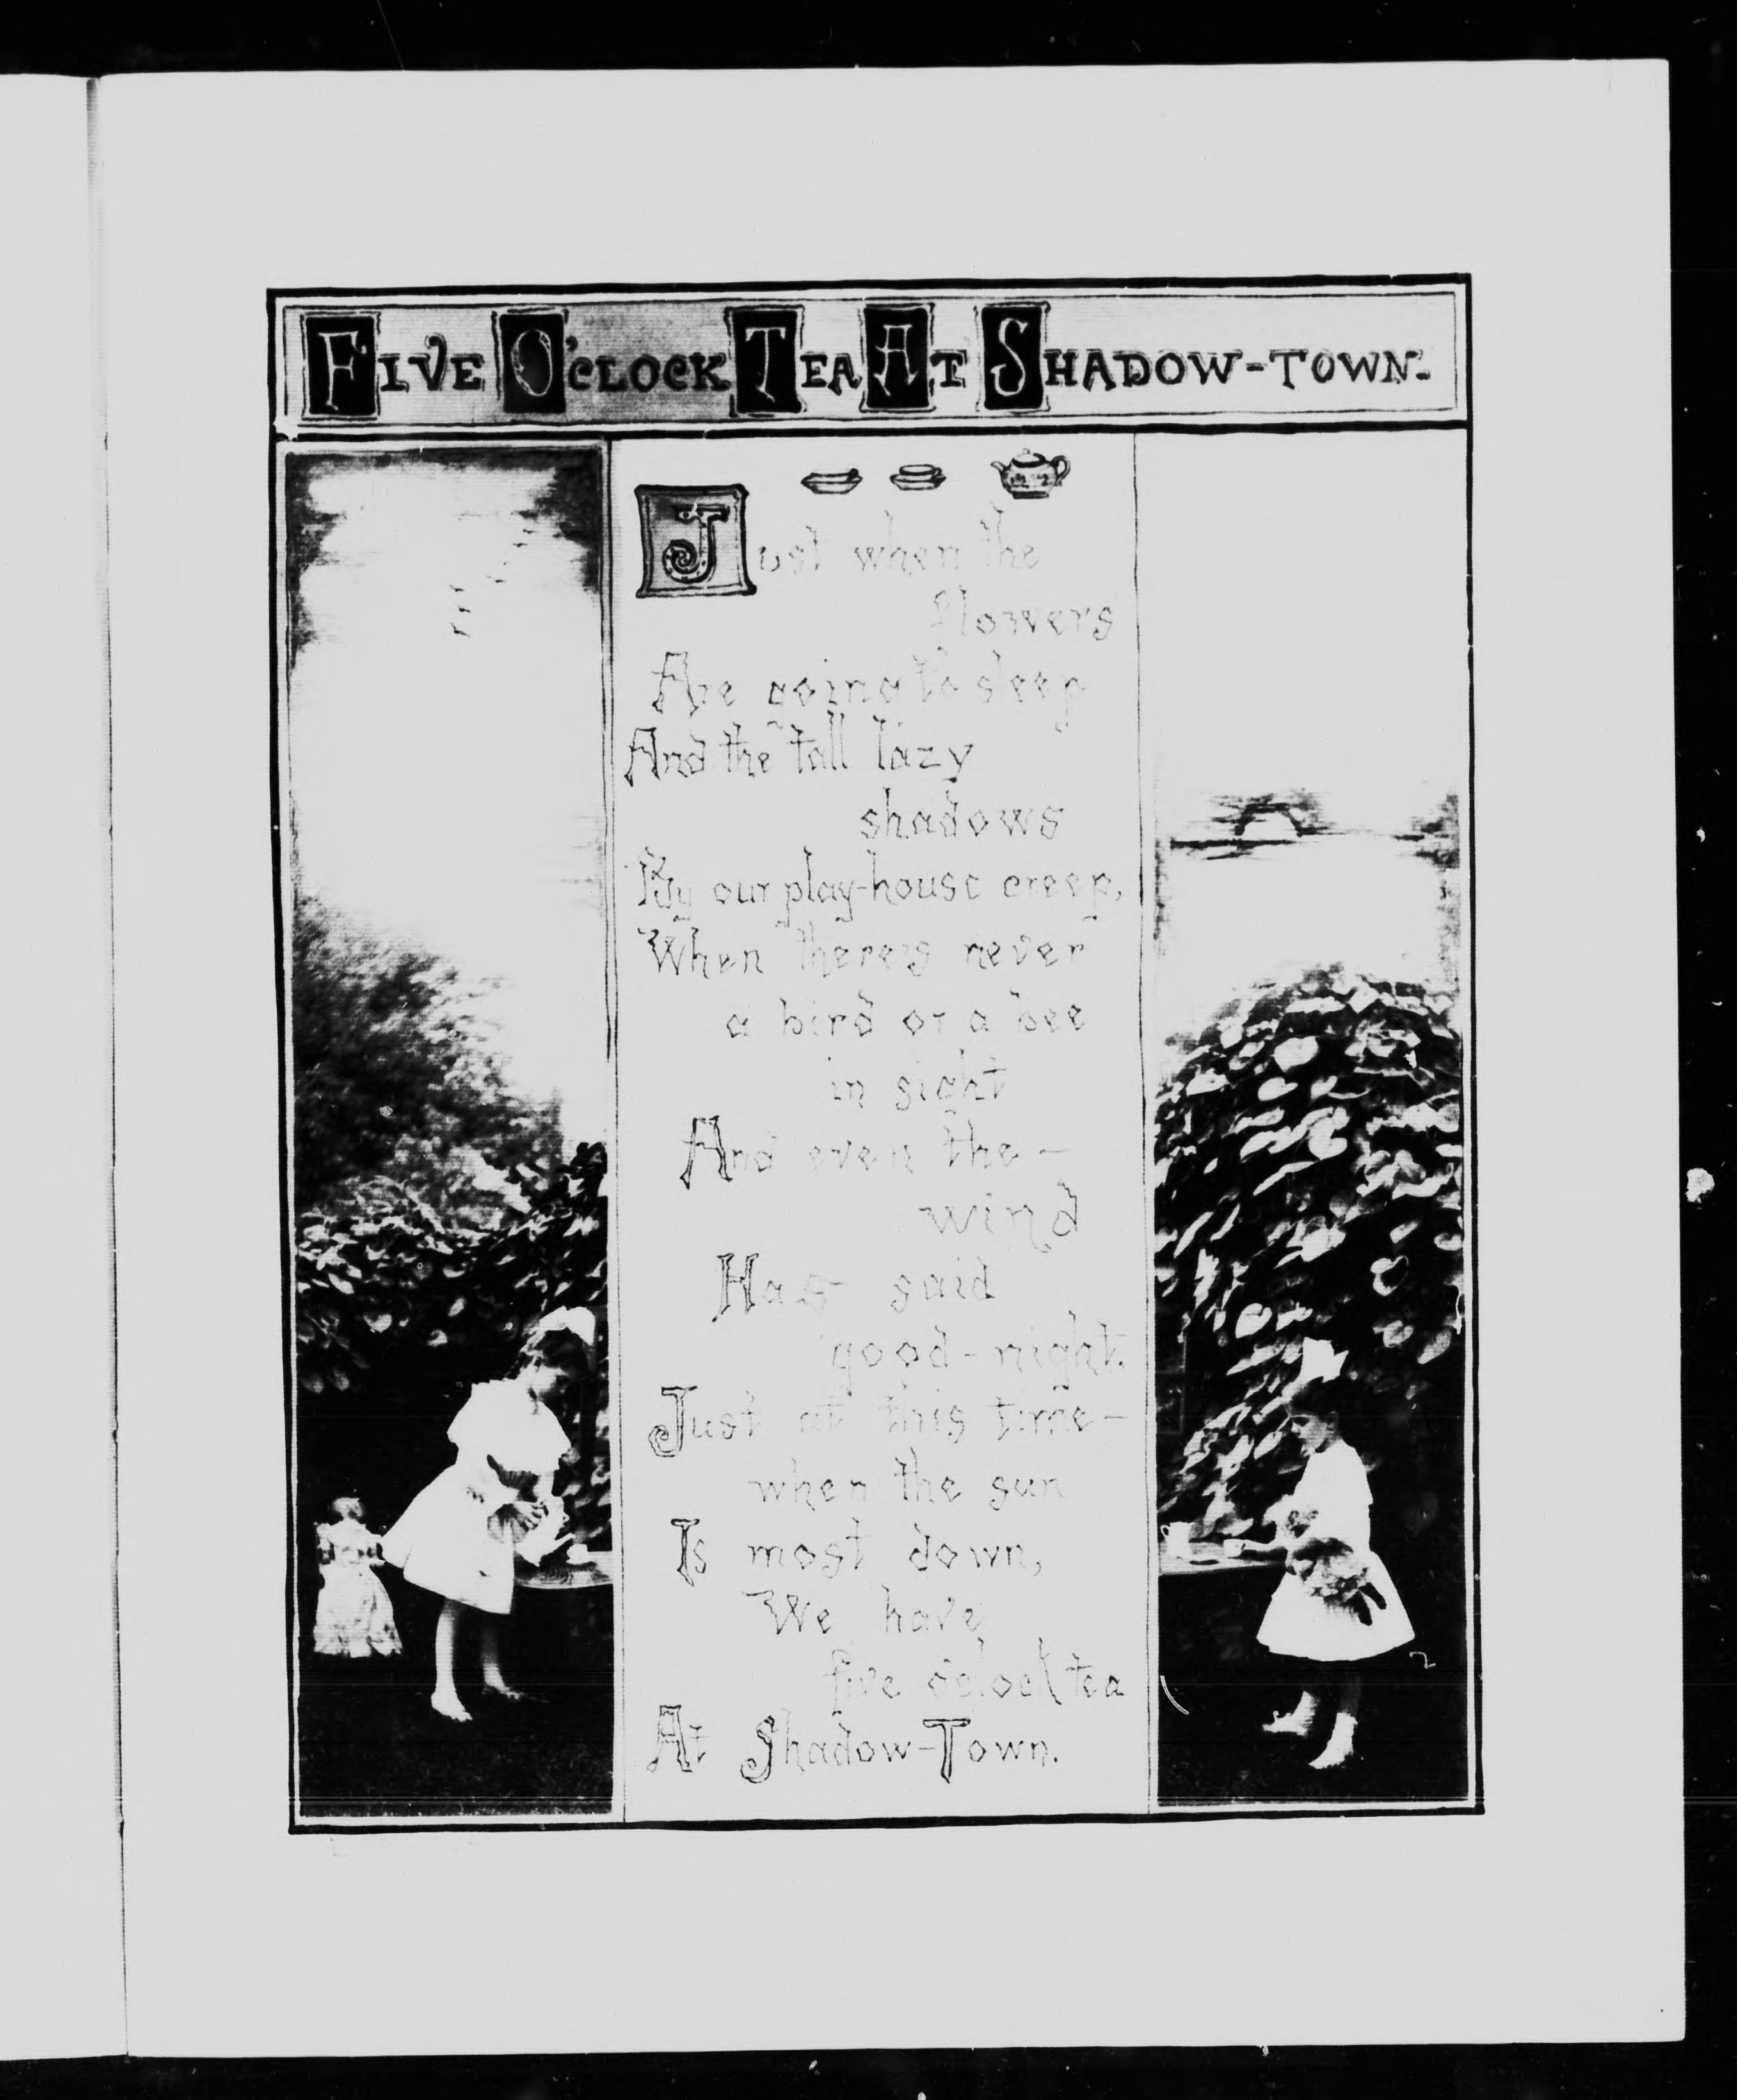 FIVE O'CLOCK TEA AT SHADOW-TOWN.
Just when the
flowers
Are going to sleep
And the tall lazy
shadows
By our play-house creep,
When there's never
a bird or a bee
in sight
And even the —
wind
Has said
good-night.
Just at this time —
when the sun
Is most down,
We have
five o'clock tea
At Shadow-Town.